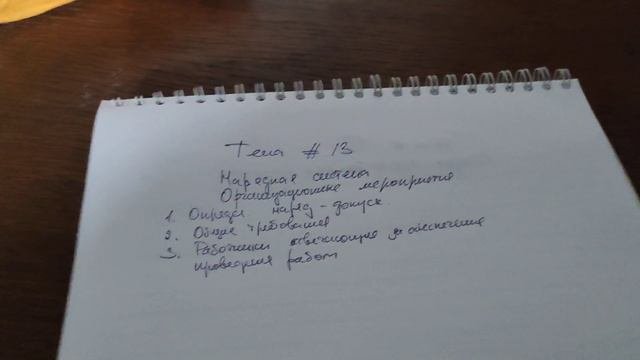 Тема # 13
Нарядная система
Организационные мероприятия
1. Опреде. наряд-допуск.
2. Общие требования
3. Работники отвечающие за обеспечение
проведения работ